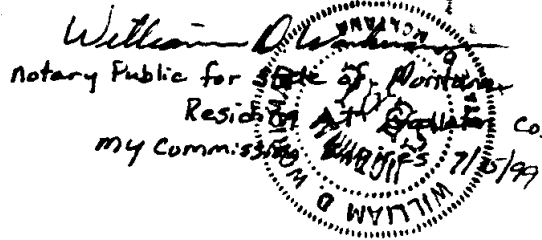 William D
notary Public for state of Montana
Residing At Gallatin Co.
my Commission Expires 7/15/99
WILLIAM D. 
MONTANA